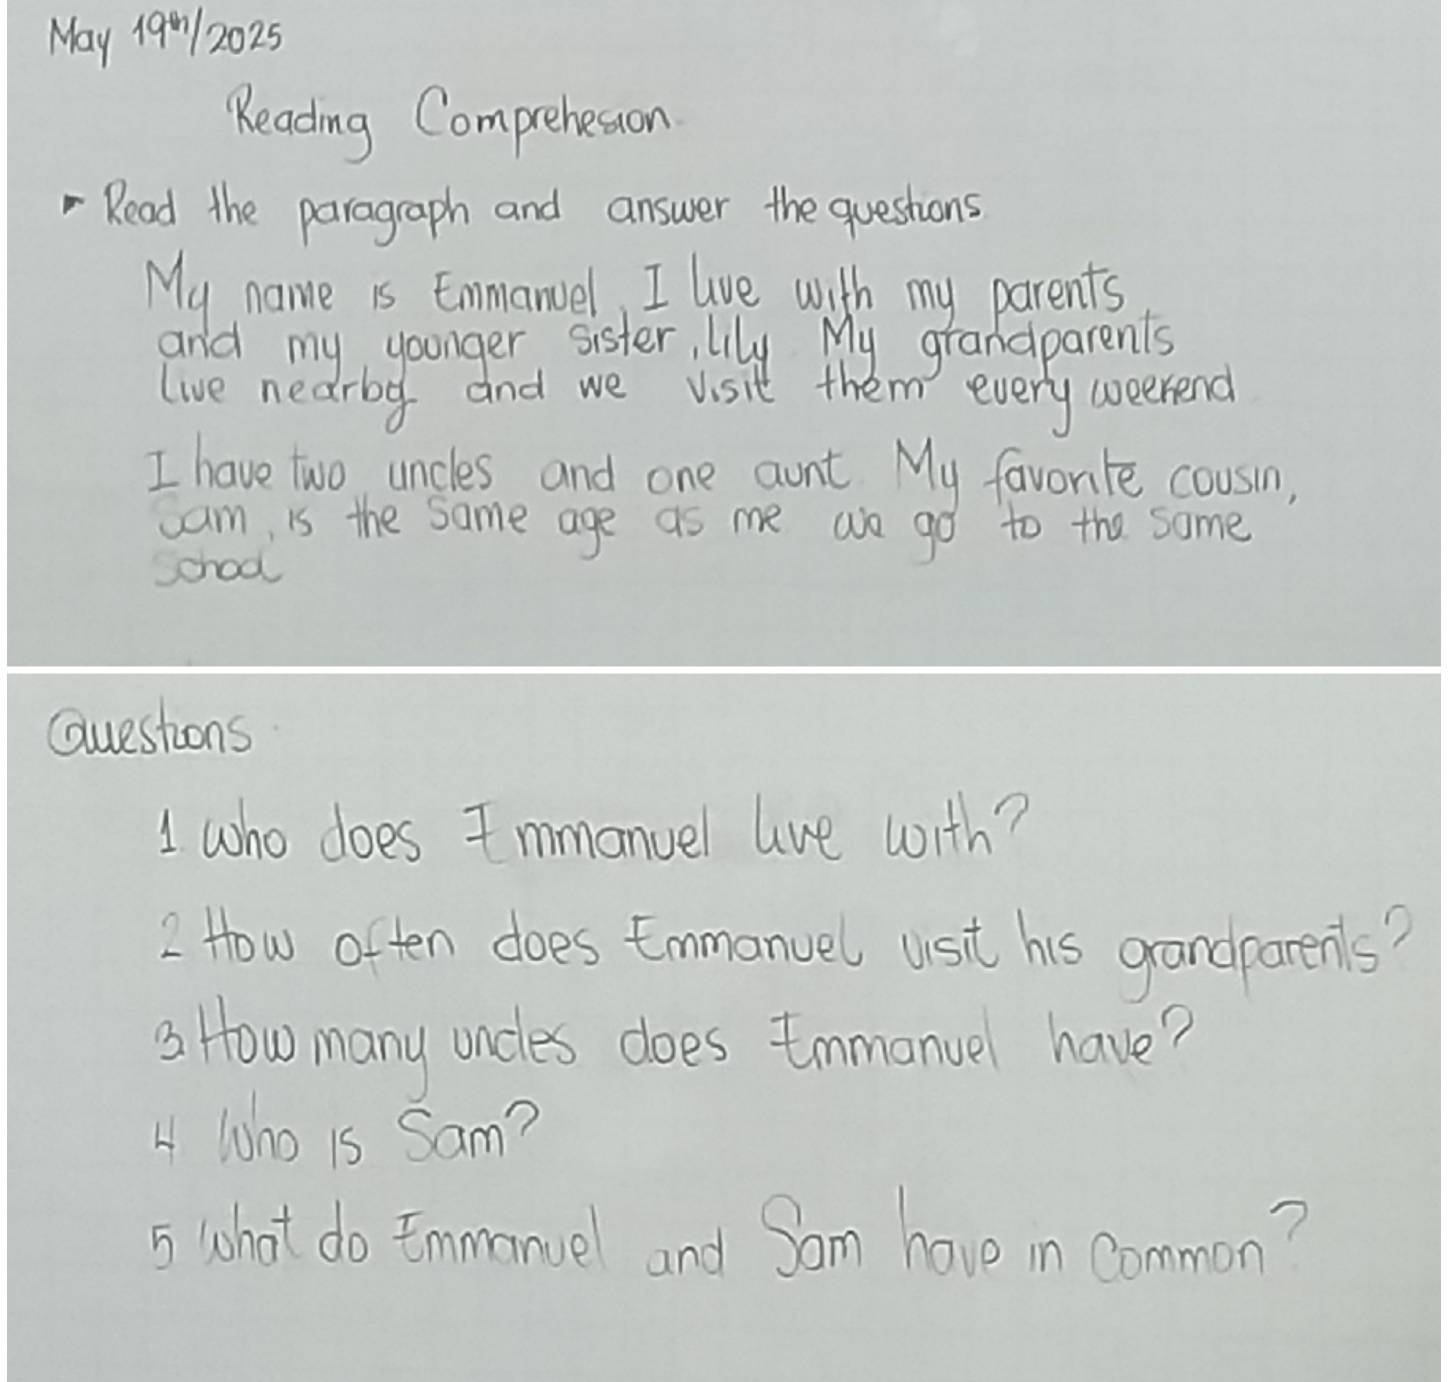 May 19th/2025
Reading Comprehesion
- Read the paragraph and answer the questions
My name is Emmanuel, I live with my parents
and my younger sister, lily. My grandparents
live nearby and we visit them every weekend
I have two uncles and one aunt. My favorite cousin,
Sam, is the same age as me we go to the same
school
Questions
1 Who does Emmanuel live with?
2 How often does Emmanuel visit his grandparents?
3 How many uncles does Emmanuel have?
4 Who is Sam?
5 What do Emmanuel and Sam have in common?